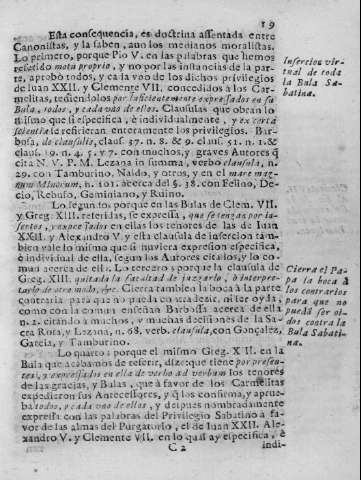 19
Esta consequencia, es doctrina assentada entre
Canonistas, y la saben, aun los medianos moralistas.
Lo primero, porque Pio V. en las palabras que hemos
referido motu proprio, y no por instancias de la par-
te, aprobò todos, y cada vno de los dichos privilegios
de Iuan XXII. y Clemente VII. concedidos à los Car-
melitas, teniendolos por suficientemente expressados en su
Bula, todos, y cada vno de ellos, Clausulas que obran lo
mismo que si especifica, è individualmente, y ex certa
scientia se refirieran enteramente los privilegios. Bar-
bosa, de clausulis, claus. 37. n. 8. & 9. claus. 51. n. 1. &
claus. 19. n. 4. 5. y 7. con muchos, y graves Autores q̃
cita N. V. P. M. Lezana in summa, verbo clausula, n.
29. con Tamburino, Naldo, y otros, y en el mare mag-
num Minorum, n. 101. acerca del §. 38. con Felino, De-
cio, Rebuso, Geminiano, y Ruino.
Lo segundo porque en las Bulas de Clem. VII.
y Greg. XIII. referidas, se expressa, que se tengan por in-
sertos, y expressados en ellas los tenores de las de Iuan
XXII. y Alexandro V. y esta clausula de insercion tam-
bien vale lo mismo que si huviera expression especifica,
è individual de ella, segun los Autores citados, y lo co-
mun acerca de ella. Lo tercero porque la clausula de
Greg. XIII. quitada la facultad de juzgarlo, ò interpre-
tarlo de otro modo, &c. Cierra tambien la boca à la parte
contraria para que no pueda contradezir, ni ser oyda,
como con la comun enseñan Barbosa acerca de ella
n. 2. citando à muchos, y muchas decisiones de la Sa-
cra Rota, y Lezana, n. 68. verb. clausula, con Gonçalez,
Garcia, y Tamburino.
Lo quarto: porque el mismo Greg. XII. en la
Bula que acabamos de referir, dize: que tiene por presen-
tes, y expressados en ella de verbo ad verbum los tenores
de las gracias, y Bulas, que à favor de los Carmelitas
expedieron sus Antecessores, y q̃ los confirma, y aprue-
ba todos, y cada vno de ellos, y despues nombradamente
expressa con las palabras del Privilegio Sabatino à fa-
vor de las almas del Purgatorio, el de Iuan XXII. Ale-
xandro V. y Clemente VII. en lo qual ay especifica, è
C 2
indi-
Insercion vir-
tual de toda
la Bula Sa-
batina.
Cierra el Pa-
pa la boca à
los contrarios
para que no
pueda ser oi-
dos contra la
Bula Sabati-
na.